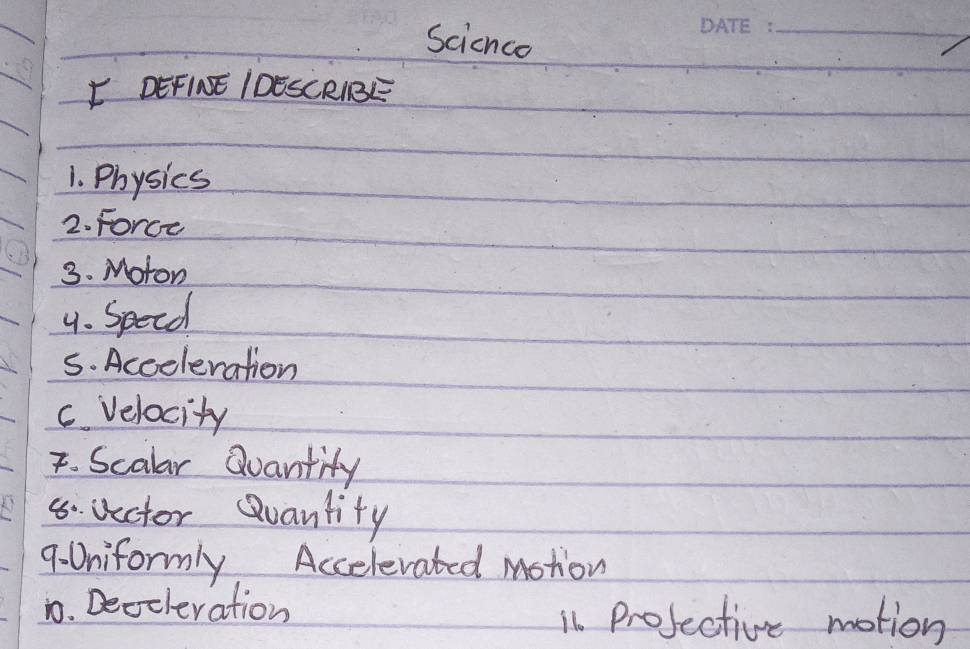 DATE :
Science
I DEFINE / DESCRIBE
1. Physics
2. Force
3. Moton
4. Speed
5. Acceleration
6. Velocity
7. Scalar Quantity
8. Vector Quantity
9. Uniformly Accelerated Motion
10. Deceleration
11. Projective motion